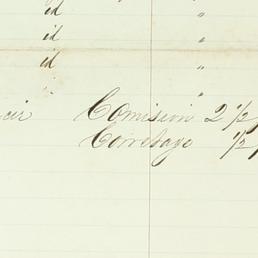 id "
id "
id "
id "
"
Comision 2 1/2
Corretage 1/2